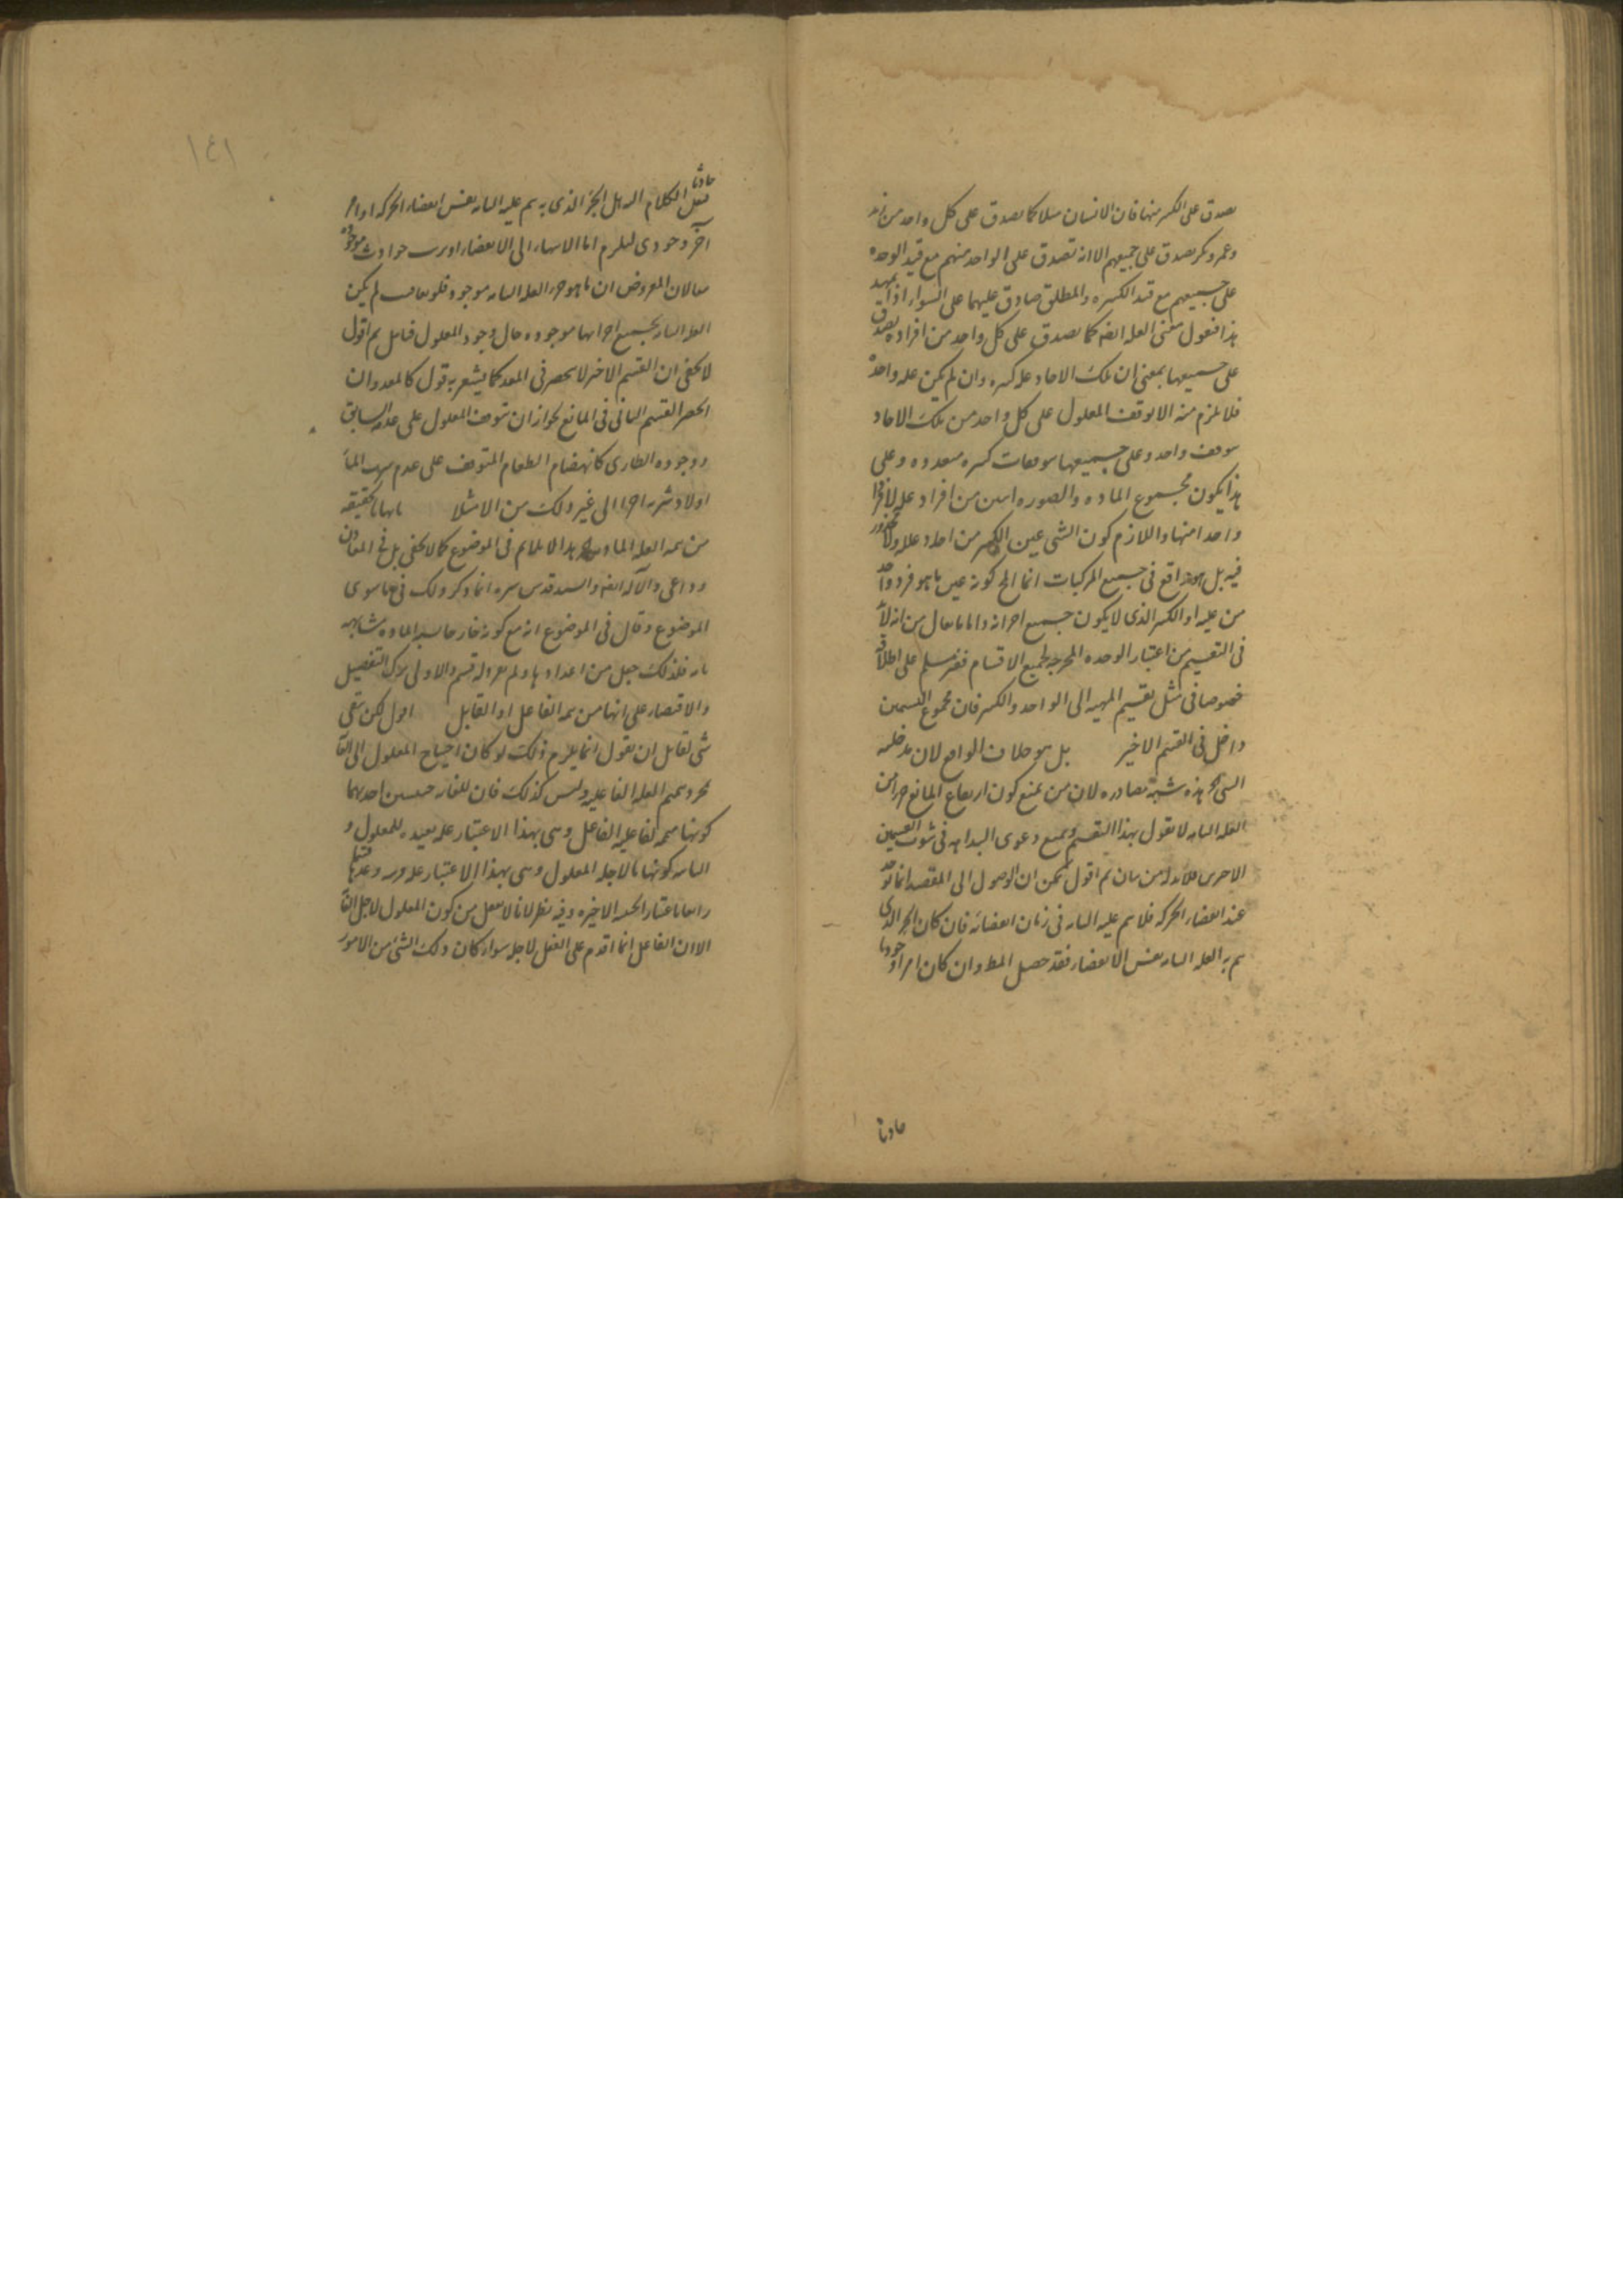 يصدق على الكثير منها فان الانسان مثلا كما يصدق على كل واحد من زيد
وعمرو وبكر يصدق على جميعهم الا انه تصدق على الواحد منهم مع قيد الوحده
على جميعهم مع قيد الكثره والمطلق صادق عليهما على السواء اذا تمهد
هذا فنقول معنى العله ايضا كما يصدق على كل واحد من افراده يصدق
على جميعها بمعنى ان تلك الاحاد علل كثيره وان لم يكن عله واحدة
فلا يلزم منه الا توقف المعلول على كل واحد من تلك الاحاد
بتوقف واحد وعلى جميعها بتوقفات كثيره متعدده وعلى
هذا يكون مجموع الماده والصوره اثنين من افراد علله لا فردا
واحدا منها واللازم كون الشى عين الكثير من احاد علله ولا محذور
فيه بل هو واقع فى جميع المركبات انما المح كونه عين ما هو فرد واحد
من علله او الكثير الذى لا يكون جميع اجزائه واما ما يقال من انه لابد
فى التقسيم من اعتبار الوحده المخرجه لجميع الاقسام فغير مسلم على اطلاقه
خصوصا فى مثل تقسيم المهيه الى الواحد والكثير فان مجموع القسمين
داخل فى القسم الاخير بل هو خلاف الواقع لان مدخليه
الشى هذه شبهة مصادره لان من يمنع كون ارتفاع المانع جزءا من
العله التامه لا يقول بهذا التقسيم ويمنع دعوى البداهه فى ثبوت القسمين
الاخرين فلابد له من بيان ثم اقول يمكن ان الوصول الى المقصد انما يوجد
عند انقضاء الحركه فلا يتم علته التامه فى زمان انقضائه فان كان الجزء الذى
يتم به العله التامه نفس الانقضاء فقد حصل المط وان كان امرا وجوديا
حادثا
١٤١
حادثا
ننقل الكلام اليه هل الجزء الذى به يتم علته التامه نفس انقضاء الحركه او امر
آخر وجودى فيلزم اما الانتهاء الى الانقضاء او ترتب حوادث موجوده
معا لان المفروض ان ما هو جزء العله التامه موجود فلو تعاقب لم يكن
العله التامه بجميع اجزائها موجوده حال وجود المعلول فتامل ثم اقول
لا يخفى ان القسم الاخير لا ينحصر فى المعد كما يشعر به قول كالمعد وان
انحصر القسم الثانى فى المانع لجواز ان يتوقف المعلول على عدمه السابق
ووجوده الطارى كانهضام الطعام المتوقف على عدم شرب الماء
اولا وشربه اخرا الى غير ذلك من الامثلا بانها بالحقيقه
من تتمه العله الماديه هذا لا يلايم فى الموضوع كما لا يخفى بل فى المعاون
والداعى والآله ايضا والسيد قدس سره انما ذكر ذلك فيما سوى
الموضوع وقال فى الموضوع انه مع كونه خارجا شبه الماده مشابهه
تامه فلذلك جعل من اعدادها ولم يفرد له قسم والاولى ترك التفصيل
والاقتصار على انها من تتمه الفاعل او القابل اقول لكن بقى
شى لقابل ان يقول انما يلزم ذلك لو كان احتياج المعلول الى الغاية
مجرد تتميم العله الفاعليه وليس كذلك فان للغايه حيثيتين احديهما
كونها متممه لفاعليه الفاعل وهى بهذا الاعتبار عله بعيده للمعلول و
الثانيه كونها ما لاجله المعلول وهى بهذا الاعتبار عله قريبه وعدها
رابعا باعتبار الحيثيه الاخيره وفيه نظر لانا لا نعقل من كون المعلول لاجل الغاية
الا ان الفاعل انما اقدم على الفعل لاجله سواء كان ذلك الشئ من الامور